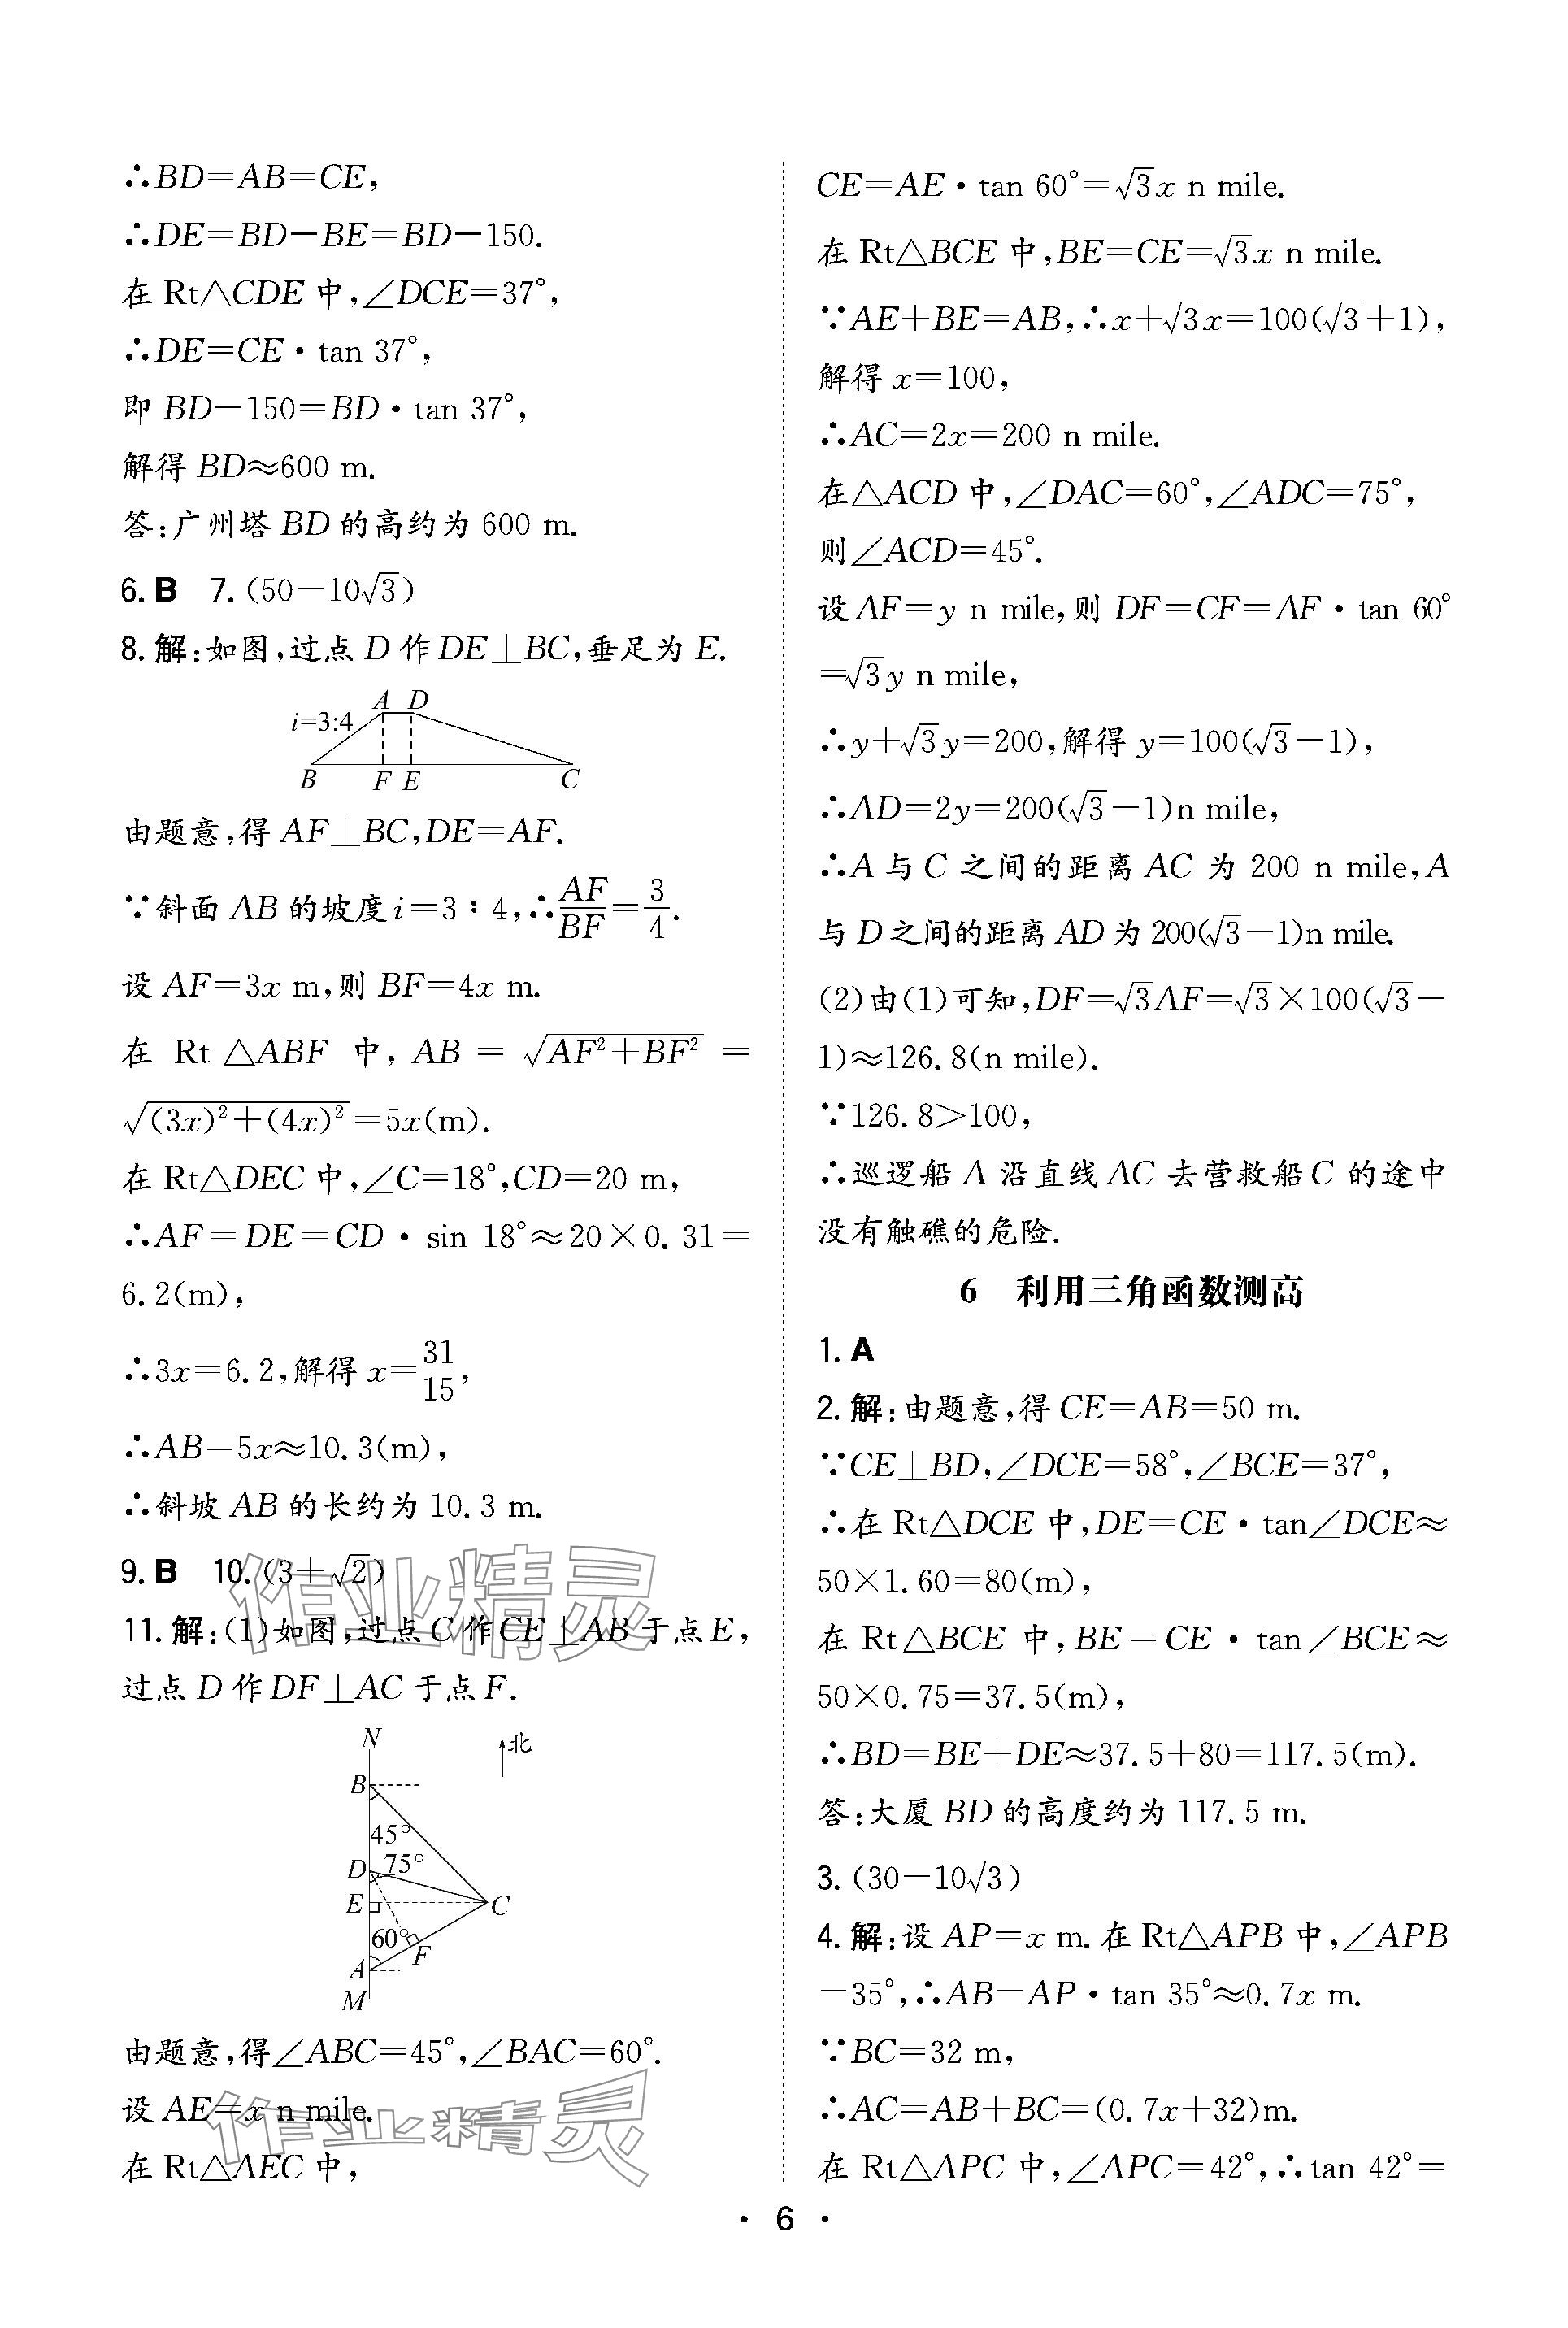 ∴BD=AB=CE,
∴DE=BD-BE=BD-150.
在 Rt△CDE 中,∠DCE=37°,
∴DE=CE·tan 37°,
即 BD-150=BD·tan 37°,
解得 BD≈600 m.
答:广州塔 BD 的高约为 600 m.
6. B 7. (50-10√3)
8. 解:如图,过点 D 作 DE⊥BC,垂足为 E.
A D
i=3:4
B F E C
由题意,得 AF⊥BC,DE=AF.
∵斜面 AB 的坡度 i=3∶4,∴AF/BF=3/4.
设 AF=3x m,则 BF=4x m.
在 Rt △ABF 中, AB = √(AF²+BF²) =
√((3x)²+(4x)²)=5x(m).
在 Rt△DEC 中,∠C=18°,CD=20 m,
∴AF=DE=CD·sin 18°≈20×0.31=
6.2(m),
∴3x=6.2,解得 x=31/15,
∴AB=5x≈10.3(m),
∴斜坡 AB 的长约为 10.3 m.
9. B 10. (3+√2)
11. 解:(1)如图,过点 C 作 CE⊥AB 于点 E,
过点 D 作 DF⊥AC 于点 F.
N 北
B
45°
D 75°
E C
60° F
A
M
由题意,得∠ABC=45°,∠BAC=60°.
设 AE=x n mile.
在 Rt△AEC 中,
CE=AE·tan 60°=√3x n mile.
在 Rt△BCE 中,BE=CE=√3x n mile.
∵AE+BE=AB,∴x+√3x=100(√3+1),
解得 x=100,
∴AC=2x=200 n mile.
在△ACD 中,∠DAC=60°,∠ADC=75°,
则∠ACD=45°.
设 AF=y n mile,则 DF=CF=AF·tan 60°
=√3y n mile,
∴y+√3y=200,解得 y=100(√3-1),
∴AD=2y=200(√3-1)n mile,
∴A 与 C 之间的距离 AC 为 200 n mile,A
与 D 之间的距离 AD 为 200(√3-1)n mile.
(2)由(1)可知,DF=√3AF=√3×100(√3-
1)≈126.8(n mile).
∵126.8>100,
∴巡逻船 A 沿直线 AC 去营救船 C 的途中
没有触礁的危险.
6 利用三角函数测高
1. A
2. 解:由题意,得 CE=AB=50 m.
∵CE⊥BD,∠DCE=58°,∠BCE=37°,
∴在 Rt△DCE 中,DE=CE·tan∠DCE≈
50×1.60=80(m),
在 Rt△BCE 中,BE=CE·tan∠BCE≈
50×0.75=37.5(m),
∴BD=BE+DE≈37.5+80=117.5(m).
答:大厦 BD 的高度约为 117.5 m.
3. (30-10√3)
4. 解:设 AP=x m. 在 Rt△APB 中,∠APB
=35°,∴AB=AP·tan 35°≈0.7x m.
∵BC=32 m,
∴AC=AB+BC=(0.7x+32)m.
在 Rt△APC 中,∠APC=42°,∴tan 42°=
· 6 ·
作业精灵
作业精灵